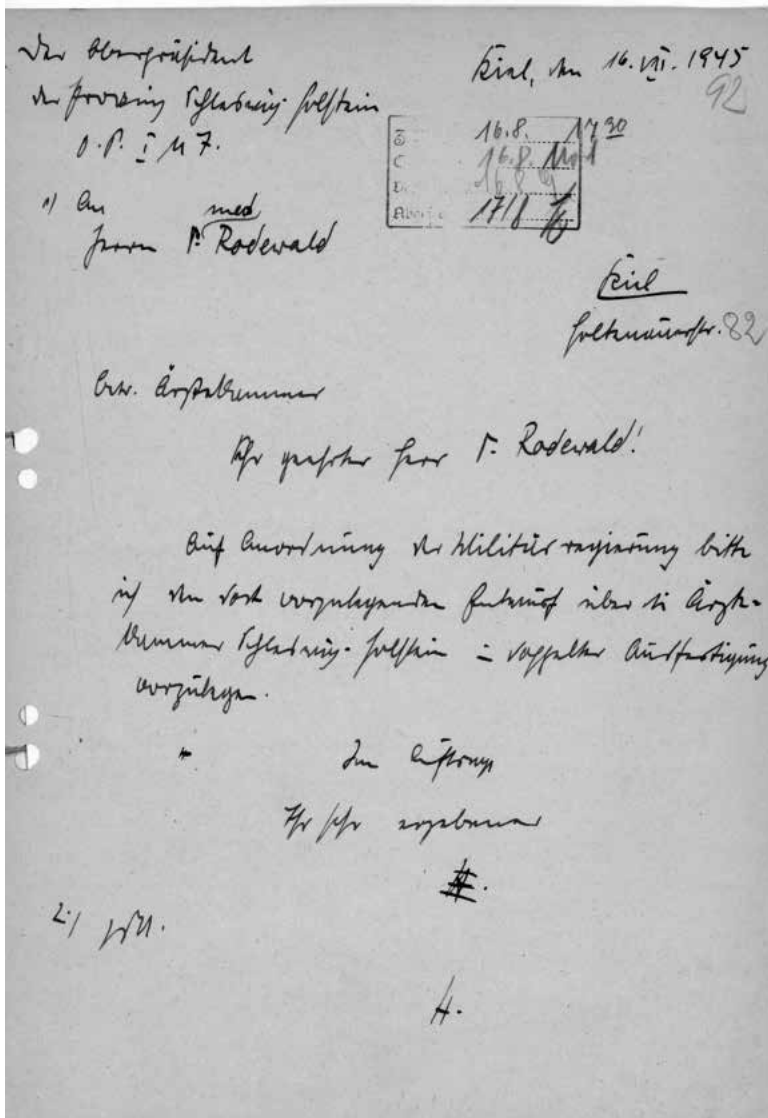 Der Oberpräsident
der Provinz Schleswig-Holstein
O.P. I M 7.
Kiel, den 16. VIII. 1945
92
16.8. 17 30
16.8.
16.8.
17/8
1) An
Herrn Dr. med Rodewald
Kiel
Holtenauerstr. 82
betr. Ärztekammer
Sehr geehrter Herr Dr. Rodewald!
Auf Anordnung der Militärregierung bitte
ich den dort vorzulegenden Entwurf über die Ärzte-
kammer Schleswig-Holstein in doppelter Ausfertigung
vorzulegen.
Im Auftrage
Ihr sehr ergebener
2.)
H.